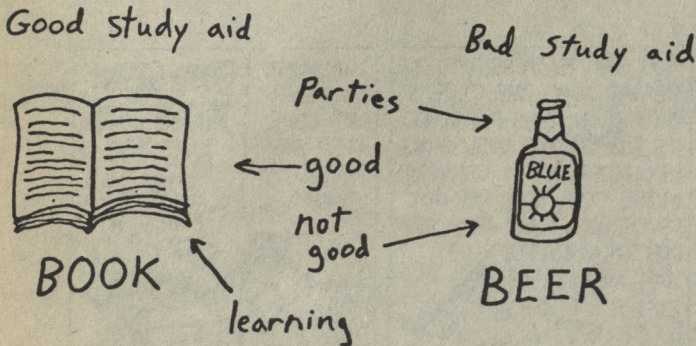 Good study aid
Bad study aid
Parties
good
not
good
BLUE
BOOK
BEER
learning